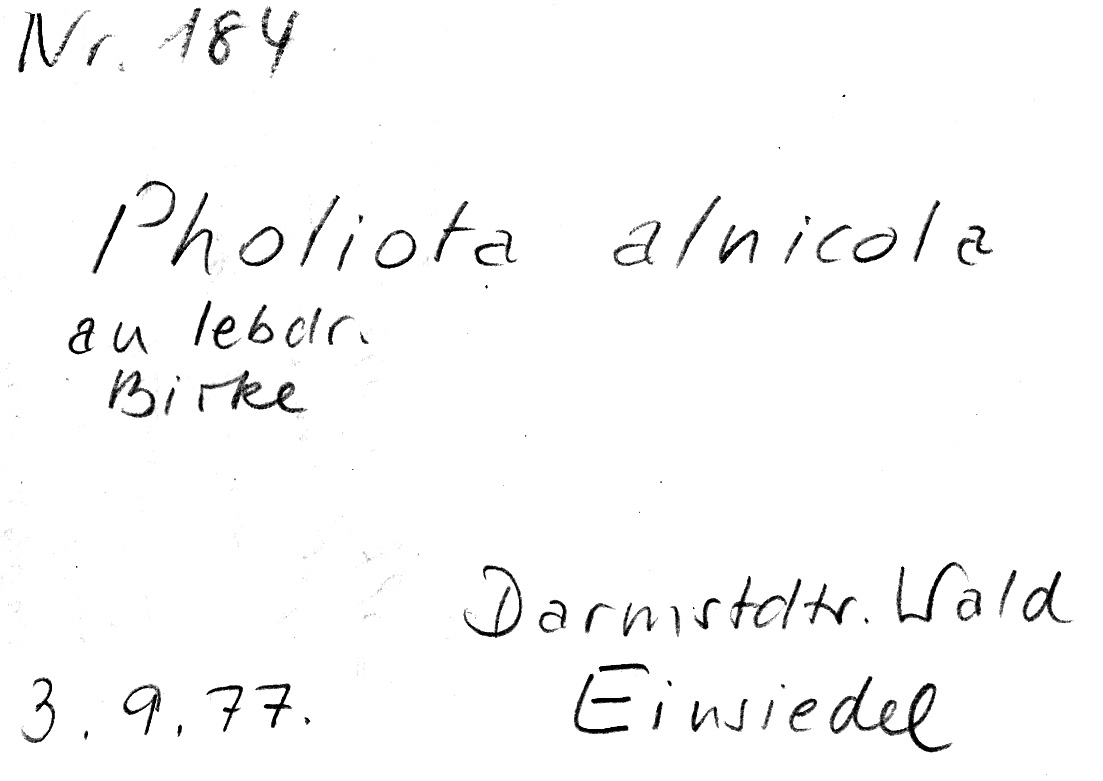 Nr. 184
Pholiota alnicola
an lebdr.
Birke
Darmstdtr. Wald
3.9.77. Einsiedel